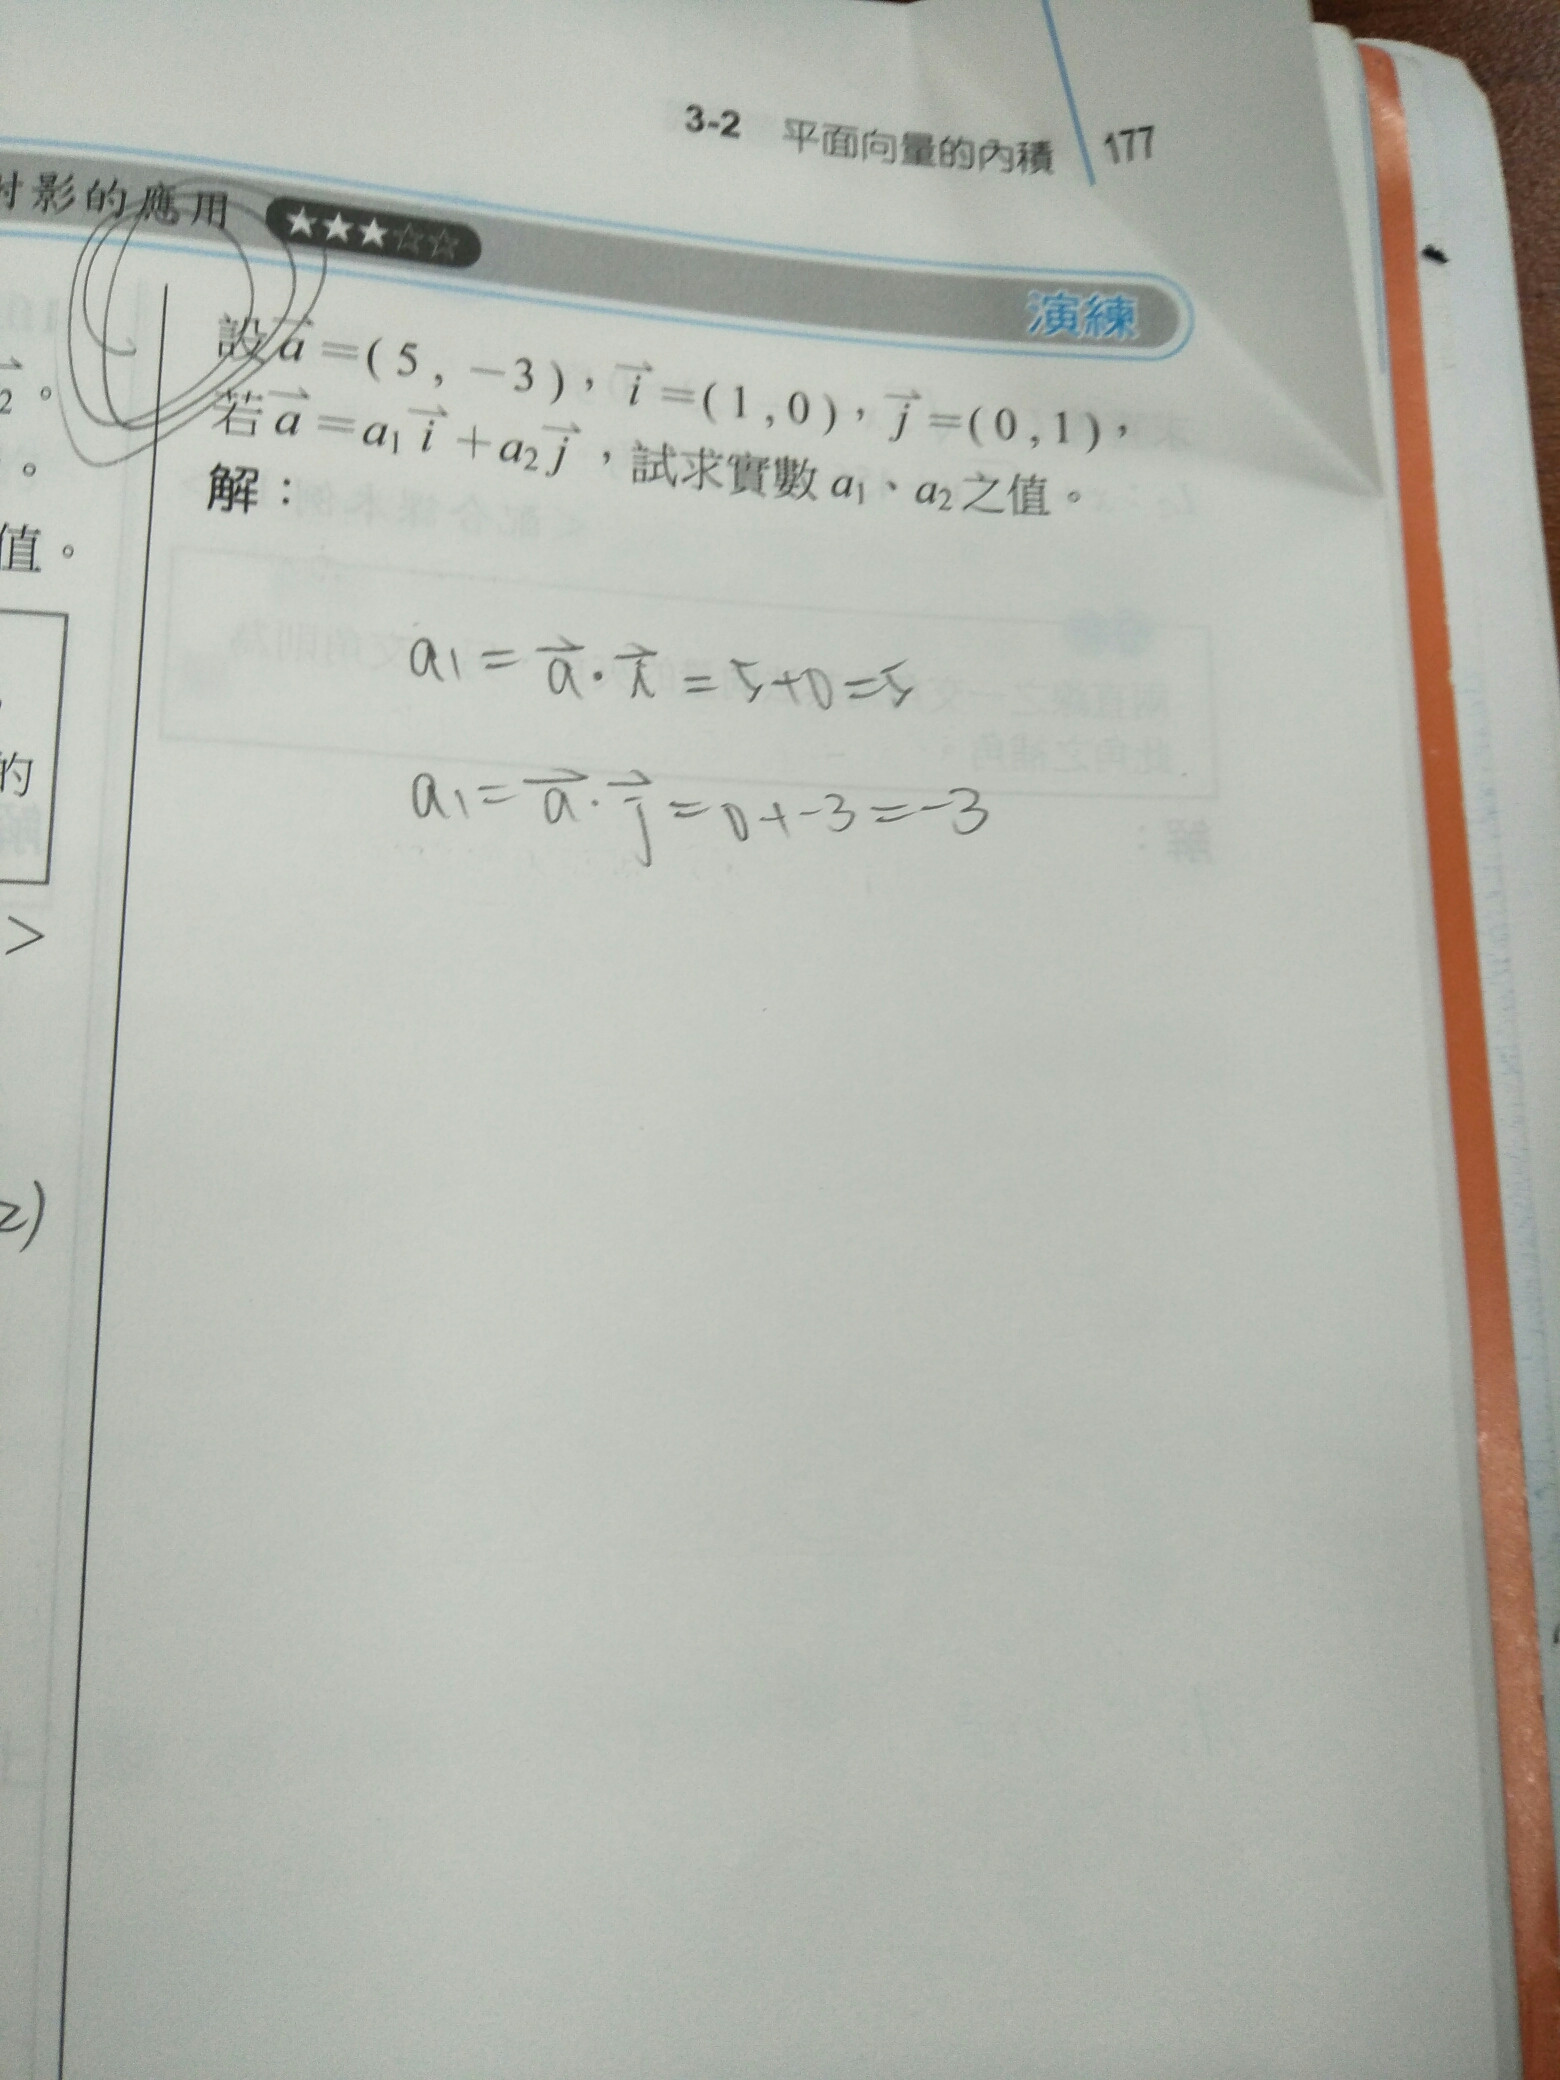 3-2 平面向量的內積 177
射影的應用 ★★★☆☆
演練
設 a⃗ =(5, -3), i⃗ =(1,0), j⃗ =(0,1),
若 a⃗ =a₁ i⃗ +a₂ j⃗ ,試求實數 a₁、a₂之值。
解:
a₁ = a⃗ · i⃗ = 5+0=5
a₁ = a⃗ · j⃗ = 0+-3=-3
2 。
。
值。
的
>
2)